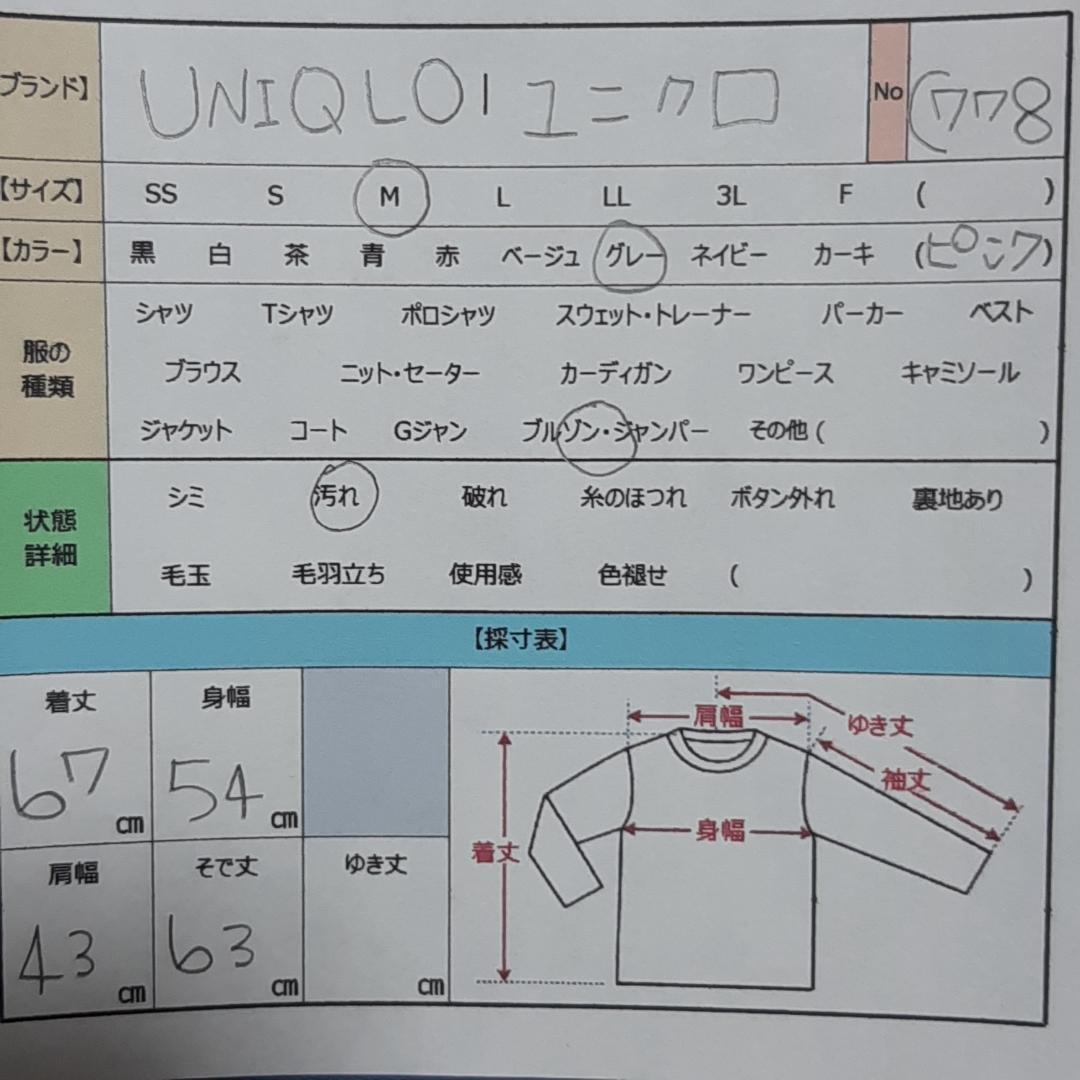 ブランド】 UNIQLO | ユニクロ No (778
【サイズ】 SS S M L LL 3L F ( )
【カラー】 黒 白 茶 青 赤 ベージュ グレー ネイビー カーキ (ピンク)
服の種類
シャツ Tシャツ ポロシャツ スウェット・トレーナー パーカー ベスト
ブラウス ニット・セーター カーディガン ワンピース キャミソール
ジャケット コート Gジャン ブルゾン・ジャンパー その他 ( )
状態詳細
シミ 汚れ 破れ 糸のほつれ ボタン外れ 裏地あり
毛玉 毛羽立ち 使用感 色褪せ ( )
【採寸表】
着丈 身幅
67 cm 54 cm
肩幅 そで丈 ゆき丈
43 cm 63 cm cm
肩幅 ゆき丈
袖丈
身幅
着丈